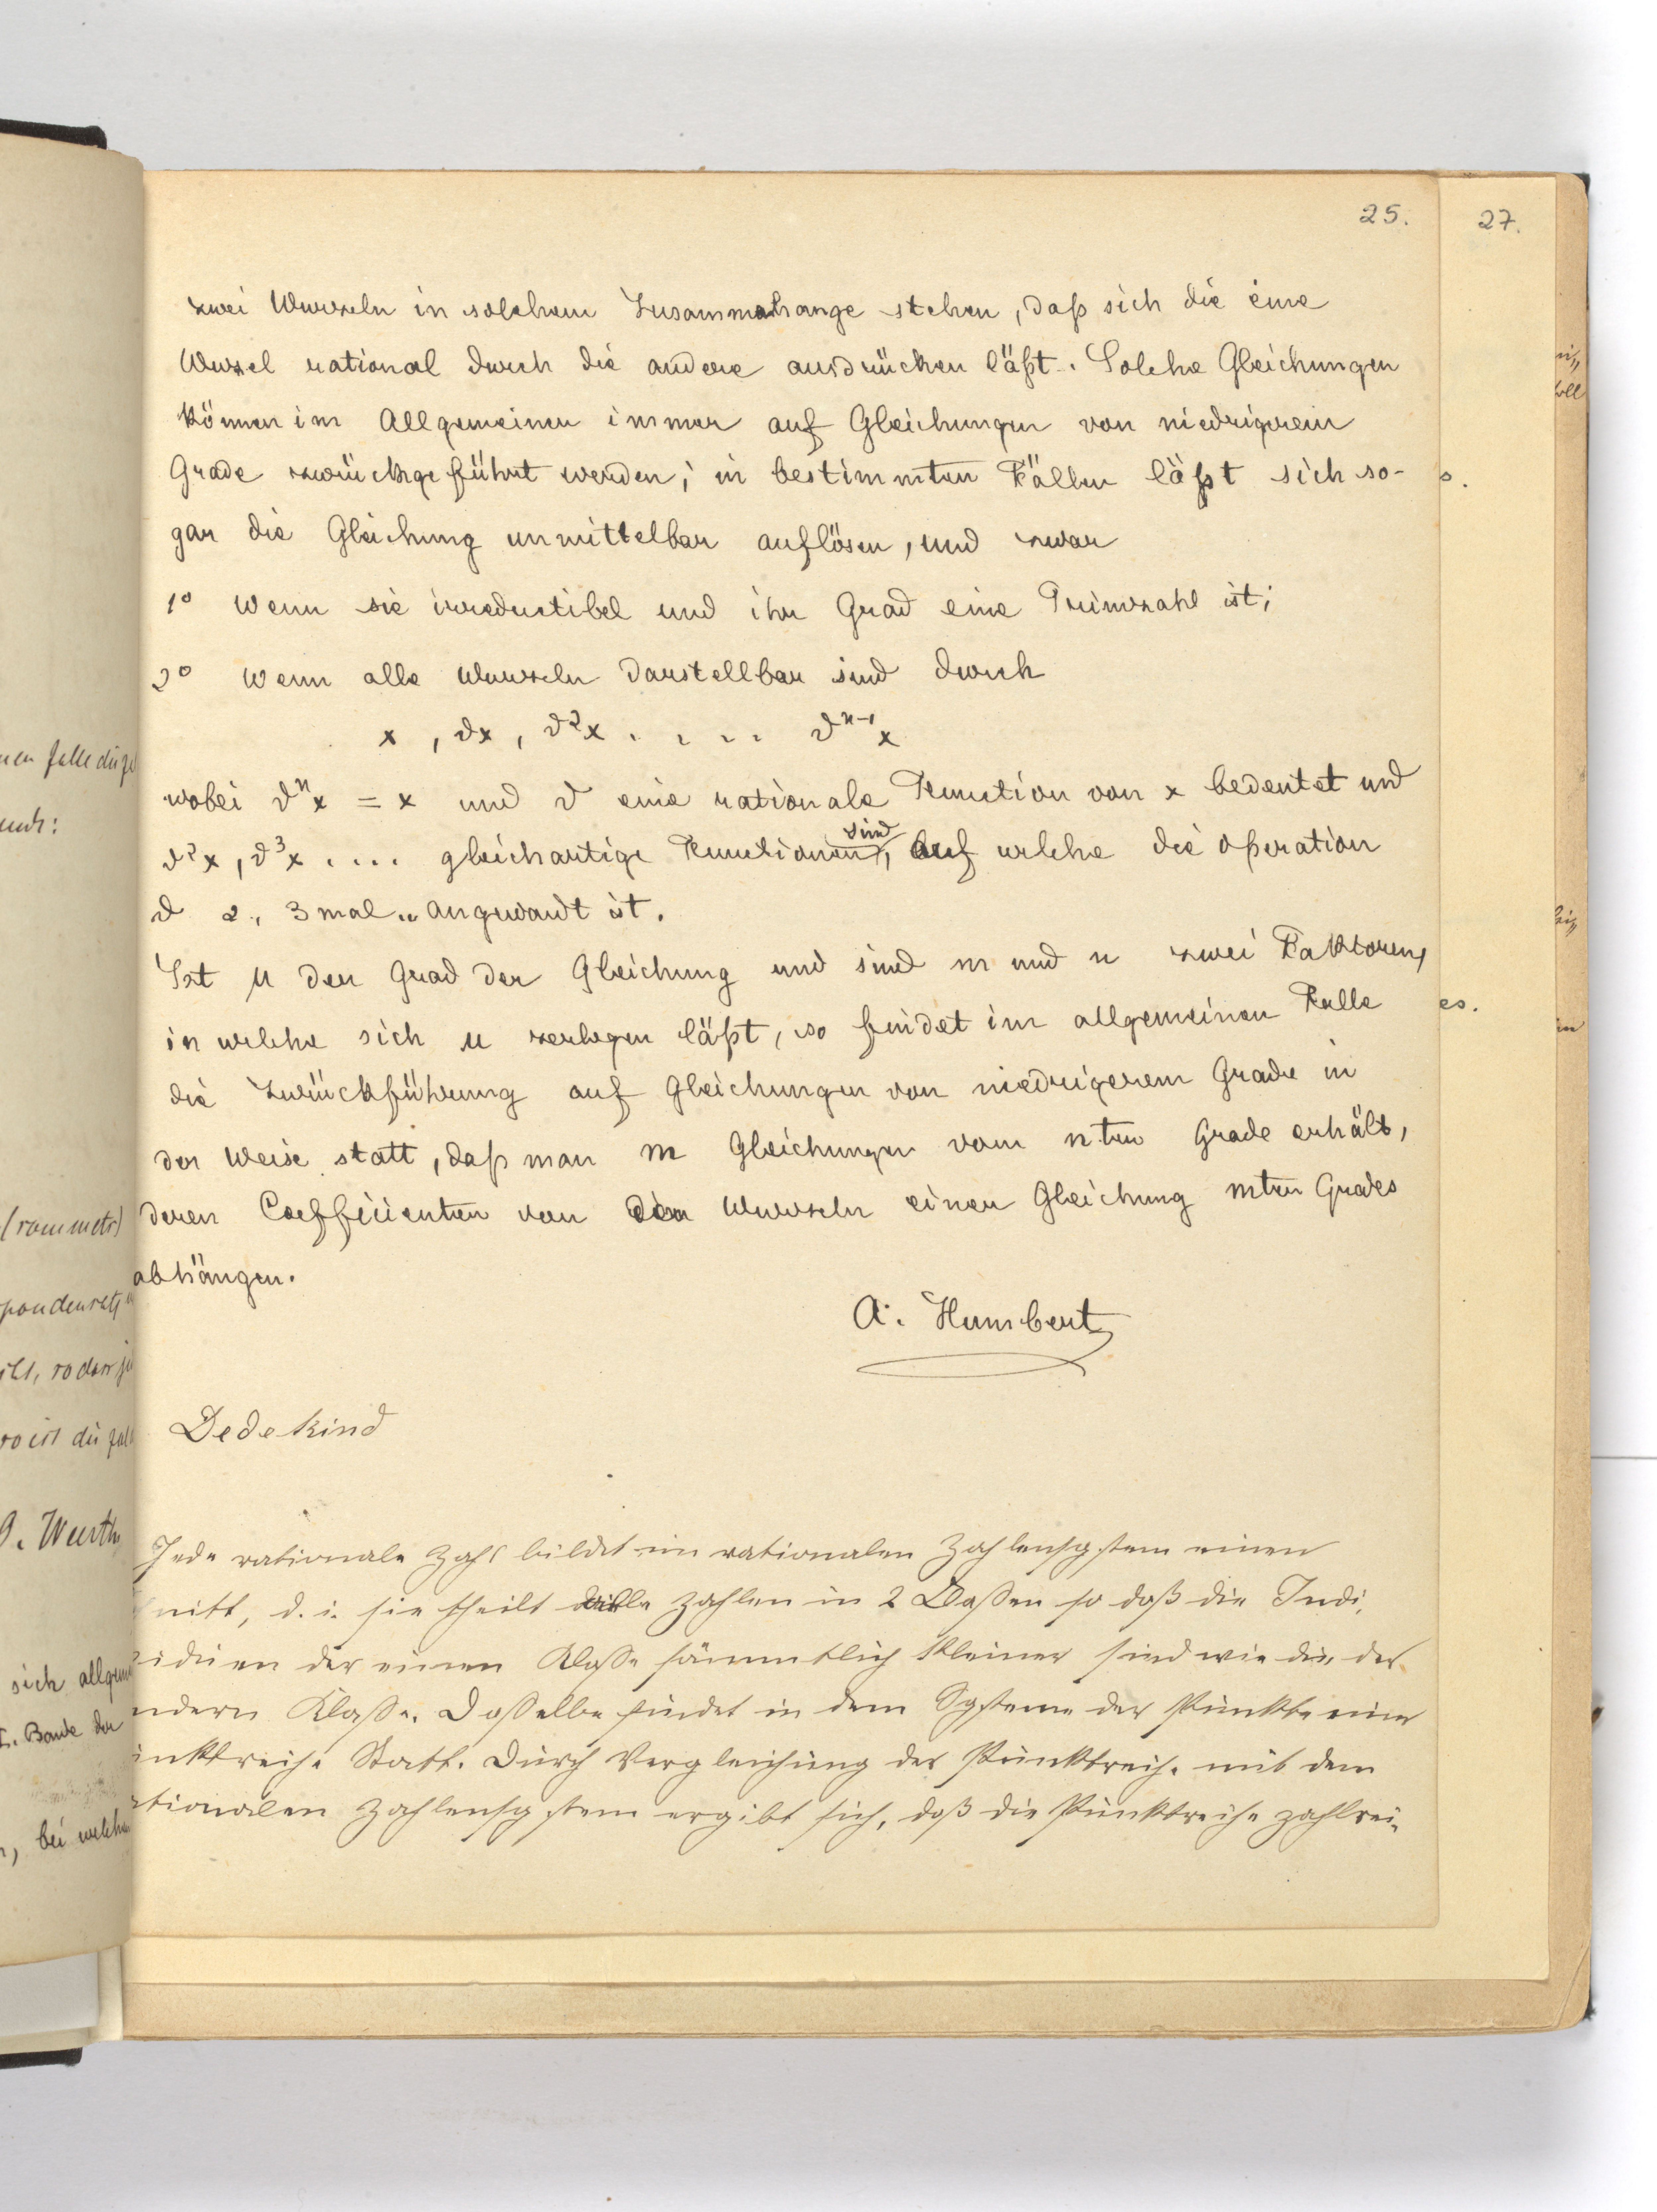 25.
27.
zwei Wurzeln in solchem Zusammenhange stehen, daß sich die eine
Wurzel rational durch die andere ausdrücken läßt. Solche Gleichungen
können im Allgemeinen immer auf Gleichungen von niedrigerem
Grade zurückgeführt werden; in bestimmten Fällen läßt sich so-
gar die Gleichung unmittelbar auflösen, und zwar
1° wenn sie irreductibel und ihr Grad eine Primzahl ist;
2° wenn alle Wurzeln darstellbar sind durch
x, ϑx, ϑ²x . . . . ϑⁿ⁻¹x
wobei ϑⁿx = x und ϑ eine rationale Function von x bedeutet und
ϑ²x, ϑ³x .... gleichartige Functionen sind, auf welche die Operation
ϑ 2, 3 mal .. angewandt ist.
Ist µ der Grad der Gleichung und sind m und n zwei Faktoren,
in welche sich µ zerlegen läßt, so findet im allgemeinen Falle
die Zurückführung auf Gleichungen von niedrigerem Grade in
der Weise statt, daß man m Gleichungen vom nten Grade erhält,
deren Coefficienten von den Wurzeln einer Gleichung mten Grades
abhängen.
A. Humbert
Dedekind
Jede rationale Zahl bildet im rationalen Zahlensystem einen
nitt, d. i. sie theilt alle Zahlen in 2 Classen so daß die Indi-
iduen der einen Klasse sämmtlich kleiner sind wie die der
ndern Klasse. Dasselbe findet in dem Systeme der Punkte einer
nktreihe Statt. Durch Vergleichung der Punktreihe mit dem
ationalen Zahlensystem ergibt sich, daß die Punktreihe zahlrei-
nen falle die
(rommetr)
G. Wurth
sich allgem
I. Bande der
bei welchen
es.